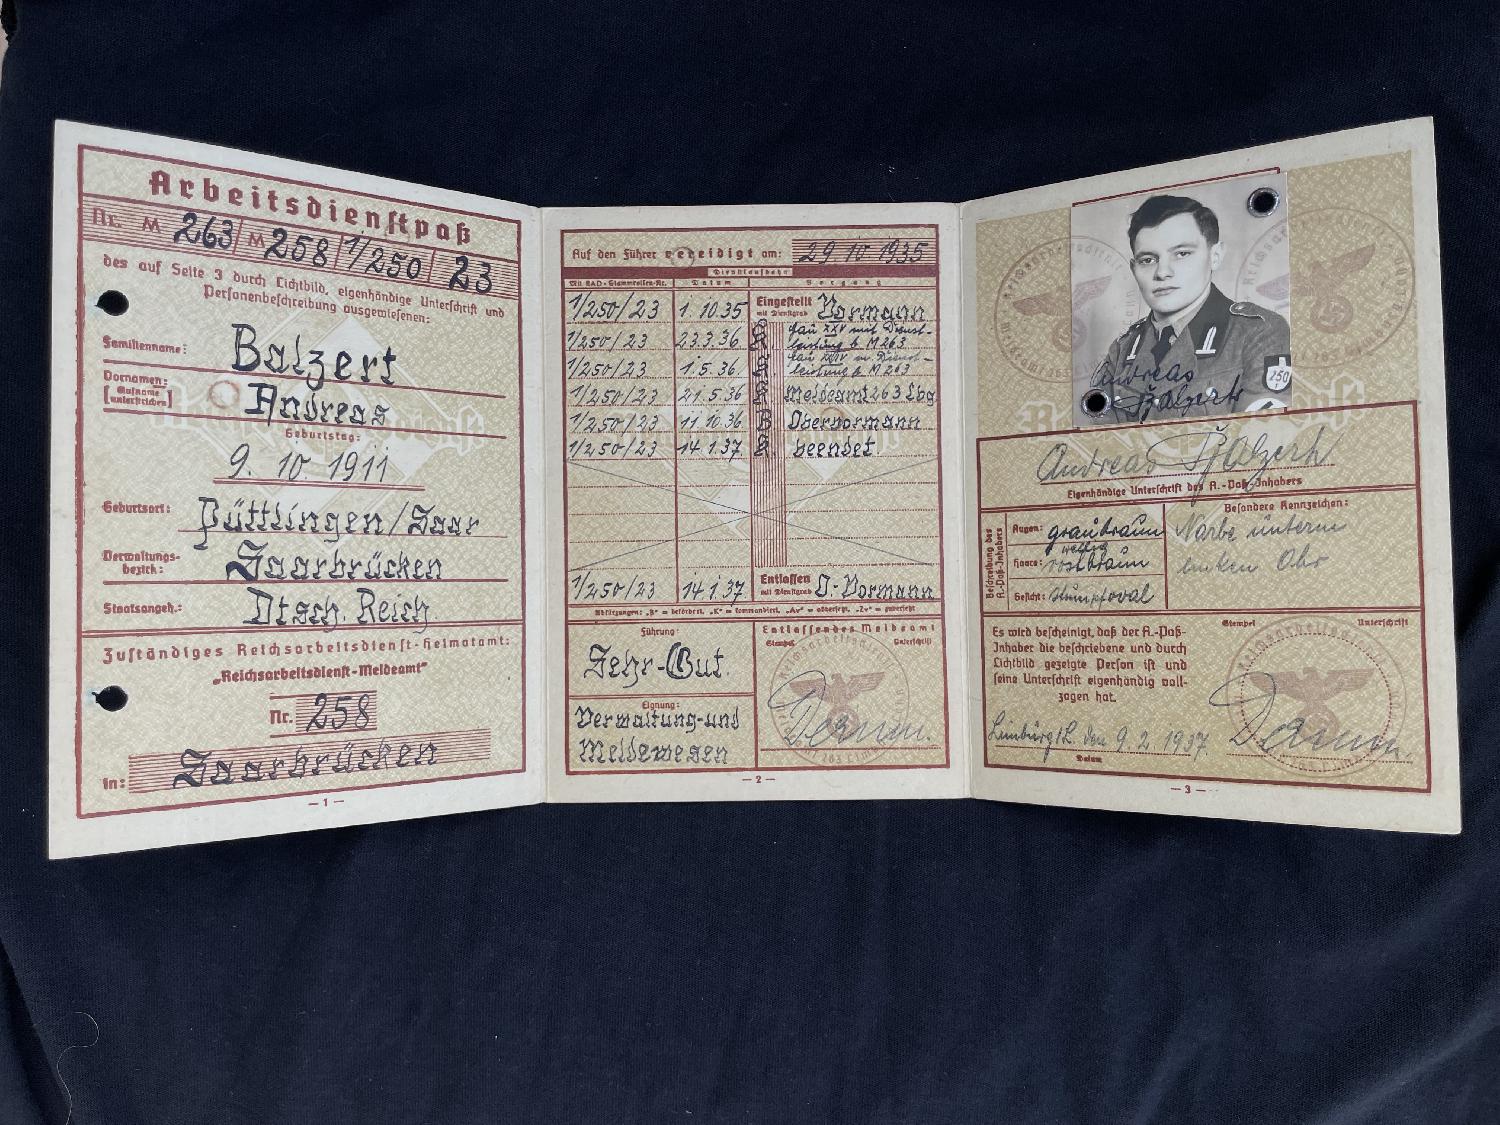 Arbeitsdienstpaß
Nr. M 263 M 258 1/250 23
des auf Seite 3 durch Lichtbild, eigenhändige Unterschrift und
Personenbeschreibung ausgewiesenen:
Familienname: Balzert
Vornamen: Andreas
[Rufname unterstrichen]
Geburtstag:
9. 10 1911
Geburtsort: Püttlingen/Saar
Verwaltungs-
bezirk: Saarbrücken
Staatsangeh.: Dtsch. Reich.
Zuständiges Reichsarbeitsdienst-Heimatamt:
„Reichsarbeitsdienst-Meldeamt"
Nr. 258
in: Saarbrücken
— 1 —
Auf den Führer vereidigt am: 29 10 1935
Dienstlaufbahn
Mit RAD-Stammrollen-Nr. Datum Vorgang
1/250/23 1. 10. 35 Eingestellt mit Dienstgrad Vormann
1/250/23 23.3.36 K. Gau XXV mit Dienst-
leistung b M 263
1/250/23 1.5.36 K. Gau XXIV m. Dienst-
leistung b M 263
1/250/23 21.5.36 K Meldeamt 263 Lbg
1/250/23 11 10.36 B Obervormann
1/250/23 14 1.37 K. beendet.
1/250/23 14 1.37 Entlassen mit Dienstgrad O.-Vormann
Abkürzungen: „B" = befördert, „K" = kommandiert, „Av" = abversetzt, „Zv" = zuversetzt
Führung:
Sehr-Gut.
Eignung:
Verwaltung-und
Meldewesen
Entlassendes Meldeamt
Stempel Unterschrift
— 2 —
250
Andreas
Balzert
Andreas Balzert
Eigenhändige Unterschrift des A.-Paß-Inhabers
Beschreibung des
A.-Paß-Inhabers
Augen: graubraun
wellig
Haare: rostbraun
Gesicht: stumpfoval
Besondere Kennzeichen:
Narbe unterm
linken Ohr
Es wird bescheinigt, daß der A.-Paß-
Inhaber die beschriebene und durch
Lichtbild gezeigte Person ist und
seine Unterschrift eigenhändig voll-
zogen hat.
Stempel Unterschrift
Limburg/L. den 9. 2. 1937.
Datum
— 3 —